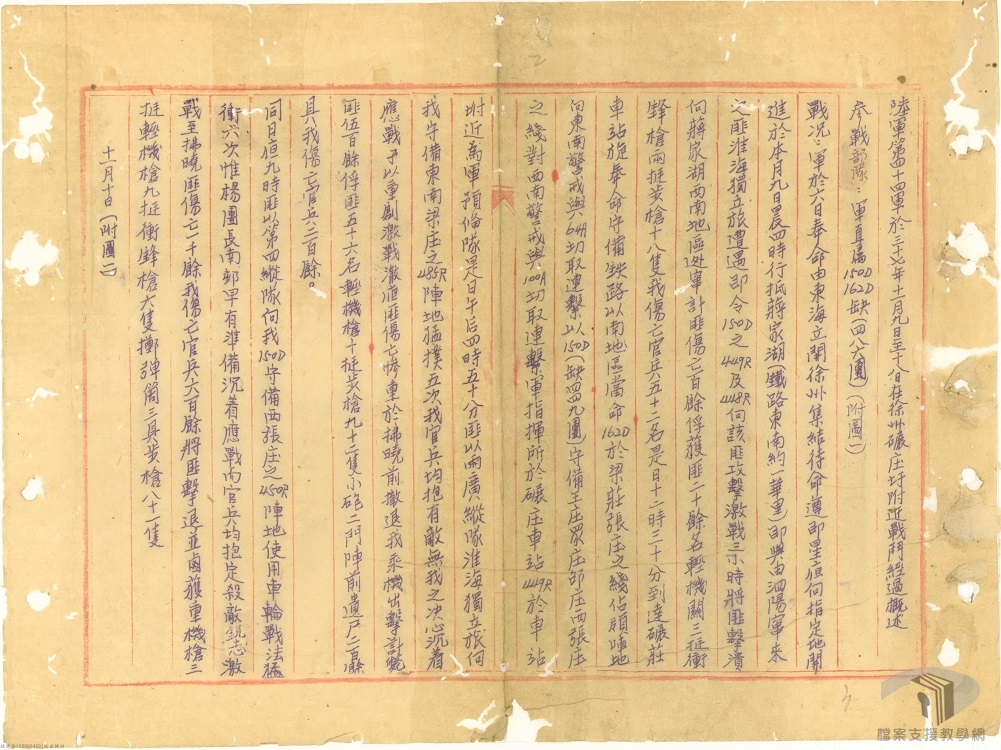 陸軍第四十四軍於三十七年十一月九日至十八日在徐州碾庄圩附近戰鬥經過概述
參戰部隊：軍直屬150D 162D缺（四八六團）（附圖一）
戰況：軍於六日奉命由東海立開徐州集結待命遵即星夜向指定地開
進於本月九日晨四時行抵蔣家湖（鐵路東南約一華里）即與由泗陽竄來
之匪淮海獨立旅遭遇即令150D之449R及448R向該匪攻擊激戰三小時將匪擊潰
向蔣家湖西南地區逃竄計匪傷亡百餘俘獲匪二十餘名輕機關三挺衝
鋒槍兩挺步槍十八隻我傷亡官兵五十二名是日十二時三十分到達碾莊
車站旋奉命守備鉄路以南地區當命162D於梁莊張庄之綫佔領陣地
向東南警戒與64A切取連繫以150D（缺四四九團）守備王庄眾庄邱庄西張庄
之綫對西南警戒與100A切取連繫軍指揮所於碾庄車站449R於車站
附近為軍預俻隊是日午后四時五十分匪以兩廣縱隊淮海獨立旅向
我守備東南梁庄之485R陣地猛撲五次我官兵均抱有敵無我之决心沉着
應戰予以重創激戰澈夜匪傷亡慘重於拂曉前撤退我乘機出擊計斃
匪伍百餘俘匪五十六名輕機槍十挺步槍九十二隻小砲二門陣前遺尸二百餘
具我傷亡官兵三百餘。
同日夜九時匪以第四縱隊向我150D守備西張庄之450R陣地使用車輪戰法猛
衝六次惟楊團長南邨早有準備沉着應戰而官兵均抱定殺敵銳志激
戰至拂曉匪傷亡一千餘我傷亡官兵六百餘將匪擊退並鹵獲重機槍三
挺輕機槍九挺衝鋒槍六隻擲弹筒三具步槍八十一隻
十一月十日（附圖二）
檔案支援教學網